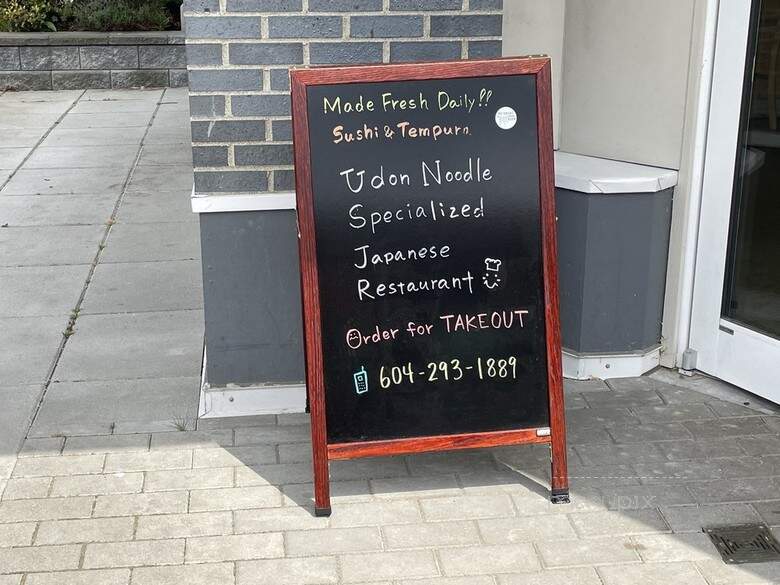 Made Fresh Daily!!
Sushi & Tempura
Udon Noodle
Specialized
Japanese
Restaurant
Order for TAKEOUT
604-293-1889